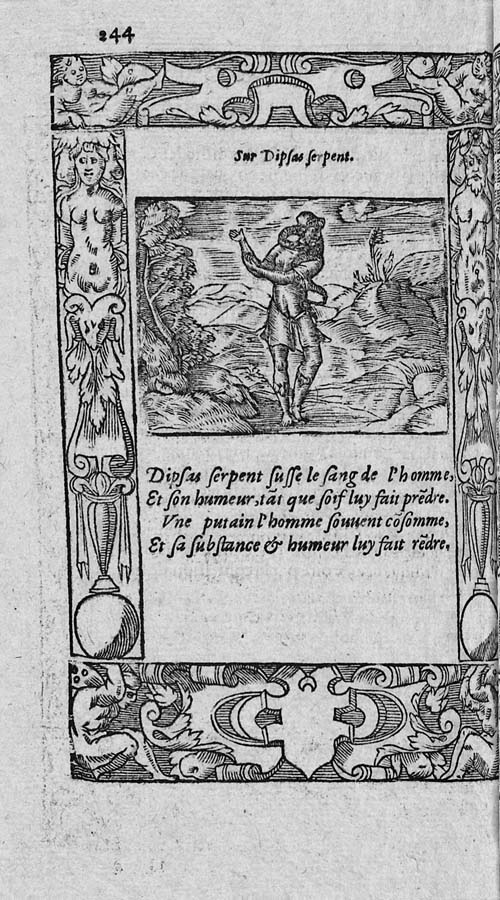 244
Sur Dipsas serpent.
Dipsas serpent susse le sang de l'homme,
Et son humeur, tãt que soif luy fait prẽdre.
Vne putain l'homme souuent cõsomme,
Et sa substance & humeur luy fait rẽdre.